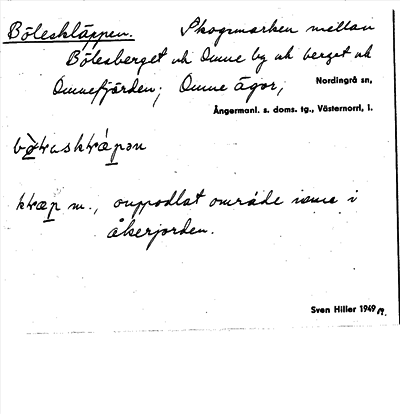 Bölesкläppen. Skogsmarken mellan
Bölesberget och Omne by och berget och
Omnefjärden; Omne ägor, Nordingrå sn,
Ångermanl. s. doms. tg., Västernorrl. l.
klæp m., ouppodlat område inne i
åkerjorden.
Sven Hiller 1949